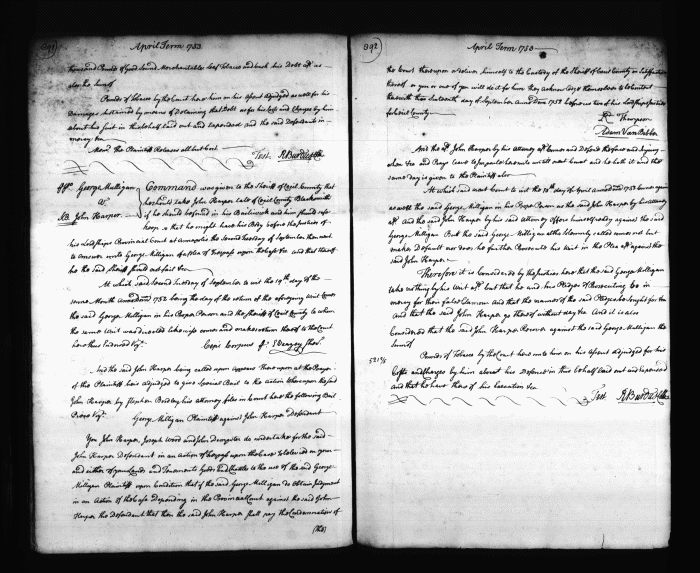 391
April Term 1753
thousand Pounds of good Sound Merchantable Leaf Tobacco and Cask his Debt afd as
also the Sum of
Pounds of Tobacco by the Court here to him on his Assent adjudged as well for his
Damages Sustained by means of Detaining that Debt as for his Costs and Charges by him
about his Suit in this behalf laid out and expended and the said Defendants in
mercy &ca
Mem. the Plaintiff Releases all but
Test. R Burdus Clk
George Milligan
agt
John Harper
Command was given to the Sheriff of Cecil County that
he should take John Harper late of Cecil County Blacksmith
if he should be found in his Bailiwick and him should safe
keep so that he might have his Body before the Justices of
his Lordships Provincial Court at Annapolis the second Tuesday of September then next
to answer unto George Milligan of a Plea of Trespass upon the Case &ca and that then
he the said Sheriff should
At which said second Tuesday of September to wit the 19th day of the
same Month Annoque Dom 1752 being the day of the return of the aforegoing Writ Comes
the said George Milligan in his Proper Person and the Sheriff of Cecil County to whom
the same Writ was directed likewise comes and makes return thereof to the Court
here thus Endorsed Vizt
Cepi Corpus
And the said John Harper being called upon appears Whereupon at the Prayer
of the Plaintiff he is adjudged to give Special Bail to the Action Whereupon the said
John Harper by Stephen Bordley his Attorney files in Court here the following Bail
Piece Vizt
George Milligan Plaintiff against John Harper Defendant
You John Harper, Joseph Wood and John Dempster do undertake for the said
John Harper Defendant in an action of Trespass upon the Case to be levied on your
and either of your Lands and Tenements Goods and Chattles to the use of the said George
Milligan Plaintiff upon Condition that if the said George Milligan do Obtain Judgment
in an Action of the Case Depending in the Provincial Court against the said John
Harper the Defendant that then the said John Harper shall pay the Condemnation of
(the)
392
April Term 1753
the Court thereupon or deliver himself to the Custody of the Sheriff of Cecil County
thereof or you or one of you will do it for him they acknowledge themselves to be
sixteenth day of September Anno Dom 1752 before us two of his Lordships Justices
for Cecil County
R Thompson
Adam VanBibber
And the afd John Harper by his attorney afd Comes and Defends the force and Injury
when &ca and Prays Leave to Imparle hereunto until next Court and he hath it and the
same day is given to the Plaintiff also
At which said next Court to wit the 10th day of April Annoque Dom 1753 Comes again
as well the said George Milligan in his Proper Person as the said John Harper by his attorney
afd And the said John Harper by his said attorney offers himself ready against the said
George Milligan But the said George Milligan altho Solemnly called comes not but
makes Default nor does he further Prosecute his Writ in the Plea afd against the
said John Harper
Therefore it is Considered by the Justices here that the said George Milligan
take nothing by his Writ afd but that he and his Pledges of Prosecuting be in
mercy for their false Clamour and that the names of the said Pledges be sought for &ca
And that the said John Harper go thereof without day &ca And it is also
Considered that the said John Harper Recover against the said George Milligan the
Sum of
Pounds of Tobacco by the Court here unto him on his Assent adjudged for his
Costs and Charges by him about his Defence in this behalf laid out and expended
and that he have thereof his Execution &ca
Test R Burdus Clk